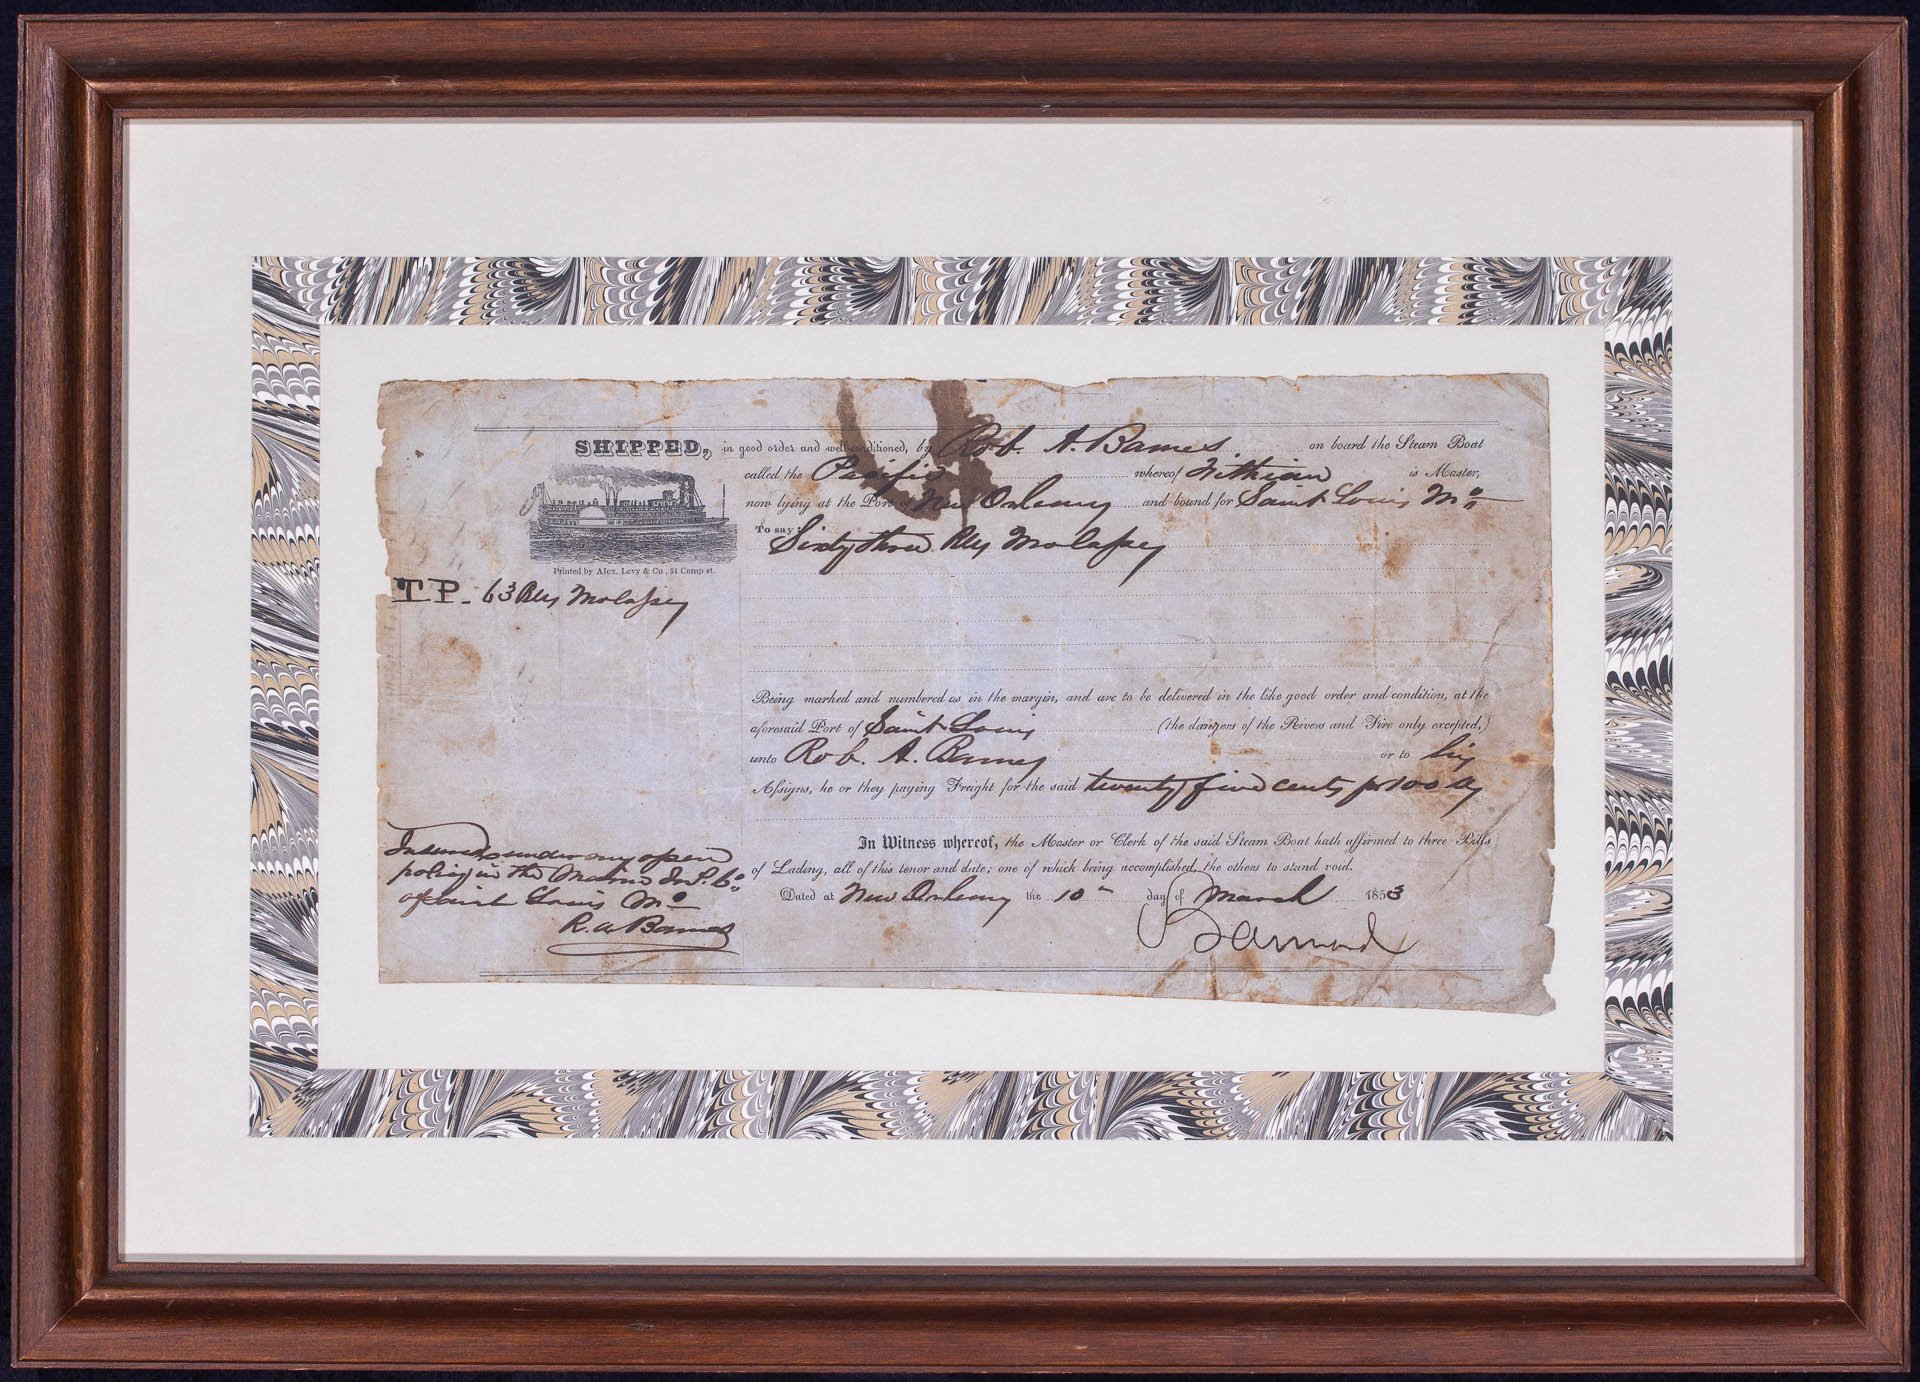 SHIPPED, in good order and well conditioned, by Rob. A. Barnes on board the Steam Boat
called the Pacific whereof Fithian is Master,
now lying at the Port of New Orleans and bound for Saint Louis Mo
To say: Sixty three Bls Molasses
Printed by Alex. Levy & Co., 51 Camp st.
TP. 63 Bls Molasses
Being marked and numbered as in the margin, and are to be delivered in the like good order and condition, at the
aforesaid Port of Saint Louis (the dangers of the Rivers and Fire only excepted,)
unto Rob. A. Barnes or to his
Assigns, he or they paying Freight for the said twenty five cents pr 100 lbs
In Witness whereof, the Master or Clerk of the said Steam Boat hath affirmed to three Bills
of Lading, all of this tenor and date; one of which being accomplished, the others to stand void.
Dated at New Orleans the 10th day of March 1853
Insured under my open
policy in the Marine Ins. Co.
of Saint Louis Mo
R. A. Barnes